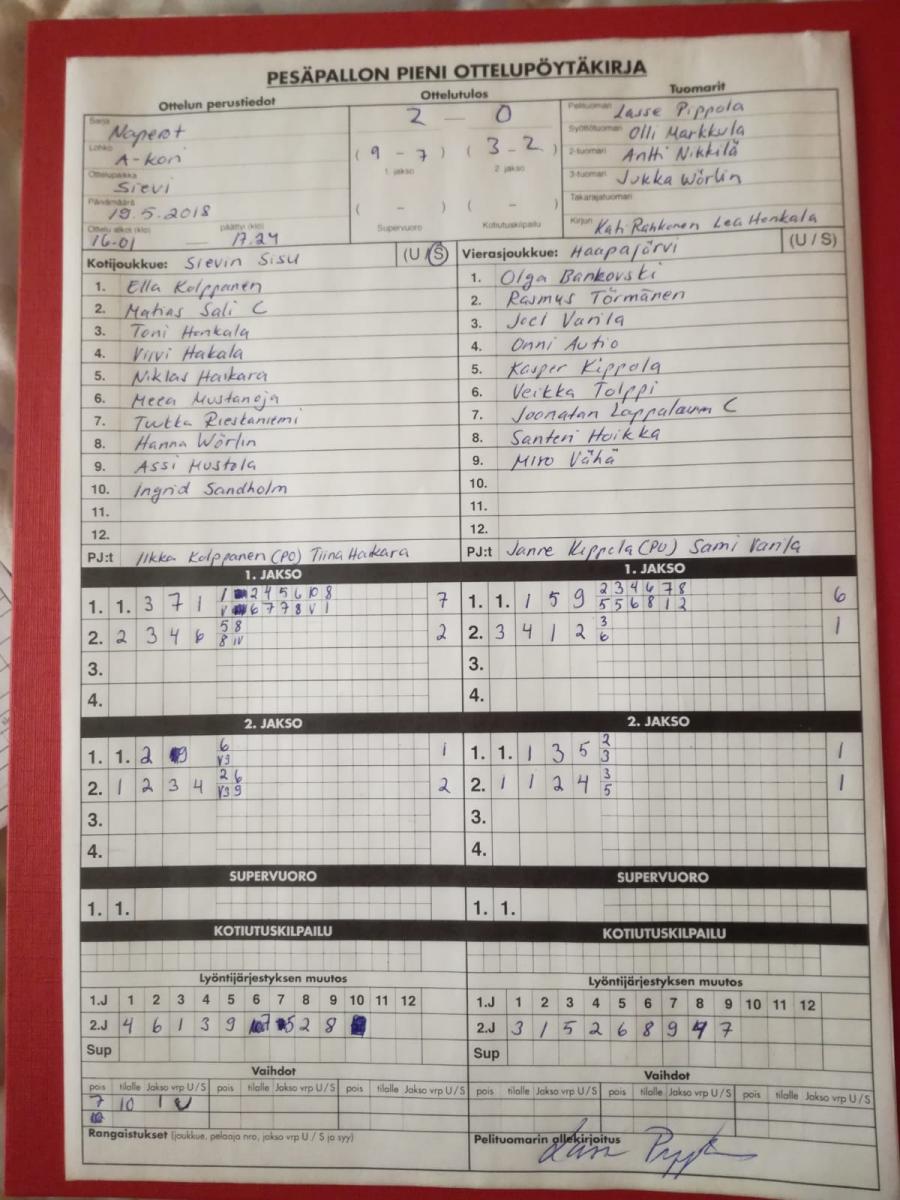 PESÄPALLON PIENI OTTELUPÖYTÄKIRJA
Ottelun perustiedot Ottelutulos Tuomarit
Sarja Naperot
Lohko A-kori
Ottelupaikka Sievi
Päivämäärä 19.5.2018
Ottelu alkoi (klo) päättyi (klo)
16.01 — 17.24
2 — 0
( 9 - 7 ) ( 3 - 2 )
1. jakso 2. jakso
( - ) ( - )
Supervuoro Kotiutuskilpailu
Pelituomari Lasse Pippola
Syöttötuomari Olli Markkula
2-tuomari Antti Nikkilä
3-tuomari Jukka Wörlin
Takarajatuomari
Kirjuri Kati Rahkonen Lea Honkala
Kotijoukkue: Sievin Sisu (U / S)
1. Ella Kolppanen
2. Matias Sali C
3. Toni Honkala
4. Viivi Hakala
5. Niklas Haikara
6. Meea Mustanoja
7. Tuukka Riestaniemi
8. Hanna Wörlin
9. Assi Hustola
10. Ingrid Sandholm
11.
12.
PJ:t Ilkka Kolppanen (PO) Tiina Haikara
Vierasjoukkue: Haapajärvi (U / S)
1. Olga Bankovski
2. Rasmus Törmänen
3. Joel Vanila
4. Onni Autio
5. Kasper Kippola
6. Veikka Tolppi
7. Joonatan Lappalainen C
8. Santeri Hoikka
9. Miro Vähä
10.
11.
12.
PJ:t Janne Kippola (PO) Sami Vanila
1. JAKSO
1. 1. 3 7 1 7
2. 2 3 4 6 5 8 2
3.
4.
1. JAKSO
1. 1. 1 5 9 2 3 4 6 7 8 6
5 5 6 8 1 2
2. 3 4 1 2 3 1
6
3.
4.
2. JAKSO
1. 1. 2 9 6 1
V3
2. 1 2 3 4 2 6 2
V3 9
3.
4.
2. JAKSO
1. 1. 1 3 5 2 1
3
2. 1 1 2 4 3 1
5
3.
4.
SUPERVUORO
1. 1.
SUPERVUORO
1. 1.
KOTIUTUSKILPAILU
KOTIUTUSKILPAILU
Lyöntijärjestyksen muutos
1.J 1 2 3 4 5 6 7 8 9 10 11 12
2.J 4 6 1 3 9 7 5 2 8
Sup
Lyöntijärjestyksen muutos
1.J 1 2 3 4 5 6 7 8 9 10 11 12
2.J 3 1 5 2 6 8 9 4 7
Sup
Vaihdot
pois tilalle Jakso vrp U / S pois tilalle Jakso vrp U / S pois tilalle Jakso vrp U / S
7 10 1 U
Vaihdot
pois tilalle Jakso vrp U / S pois tilalle Jakso vrp U / S pois tilalle Jakso vrp U / S
Rangaistukset (joukkue, pelaaja nro, jakso vrp U / S ja syy)
Pelituomarin allekirjoitus